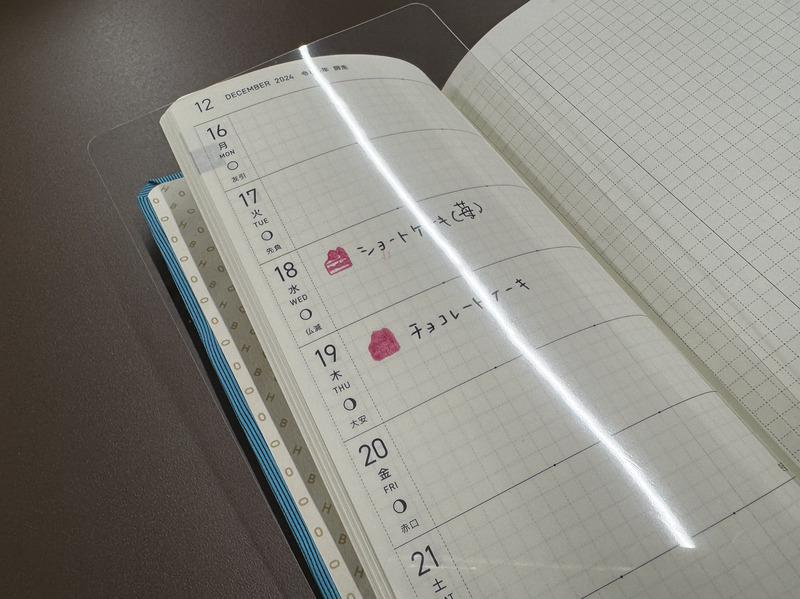 12 DECEMBER 2024 年 師走
16
月
MON
友引
17
火
TUE
先負
18
水
WED
仏滅
ショートケーキ(苺)
19
木
THU
大安
チョコレートケーキ
20
金
FRI
赤口
21
土